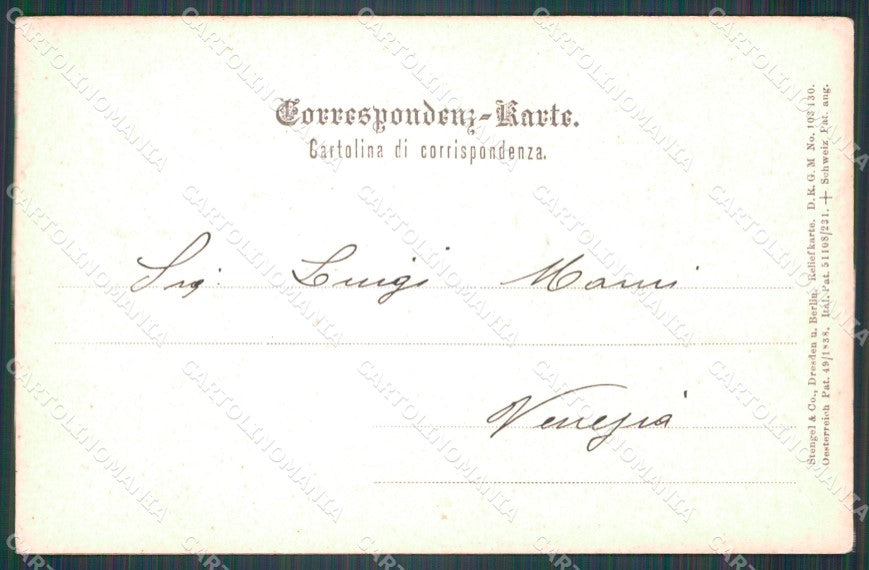 Correspondenz-Karte.
Cartolina di corrispondenza.
Sig. Luigi
Venezia
Stengel & Co., Dresden u. Berlin. Reliefkarte. D.R.G.M No. 103430.
Oesterreich Pat. 49/1838. Ital. Pat. 51108/231. + Schweiz. Pat. ang.
CARTOLINOMANIA